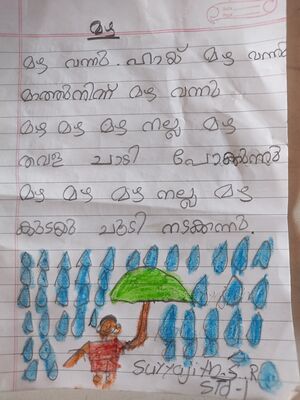 മഴ
മഴ വന്നു. ഹായ് മഴ വന്നു
മാനത്തുനിന്ന് മഴ വന്നു
മഴ മഴ മഴ നല്ല മഴ
തവള ചാടി പോകുന്നു
മഴ മഴ മഴ നല്ല മഴ
കുടയും ചൂടി നടക്കുന്നു.
Suryajith. S. R
Std-I